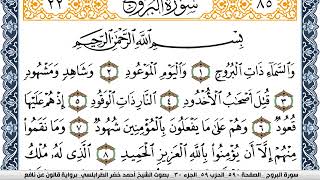 ٢٢ سُورَةُ البُرُوجِ ٨٥
بِسْمِ اللَّهِ الرَّحْمَٰنِ الرَّحِيمِ
وَالسَّمَآءِ ذَاتِ الْبُرُوجِ ١ وَالْيَوْمِ الْمَوْعُودِ ٢ وَشَاهِدٍ وَمَشْهُودٍ
٣ قُتِلَ أَصْحَٰبُ الْأُخْدُودِ ٤ النَّارِ ذَاتِ الْوَقُودِ ٥ إِذْ هُمْ عَلَيْهَا
قُعُودٌ ٦ وَهُمْ عَلَىٰ مَا يَفْعَلُونَ بِالْمُؤْمِنِينَ شُهُودٌ ٧ وَمَا نَقَمُوا
مِنْهُمْ إِلَّا أَنْ يُؤْمِنُوا بِاللَّهِ الْعَزِيزِ الْحَمِيدِ ٨ الَّذِى لَهُ مُلْكُ
سورة البروج - الصفحة ٥٩٠ - الحزب ٥٩ - الجزء ٣٠ - بصوت الشيخ أحمد خضر الطرابلسي - برواية قالون عن نافع